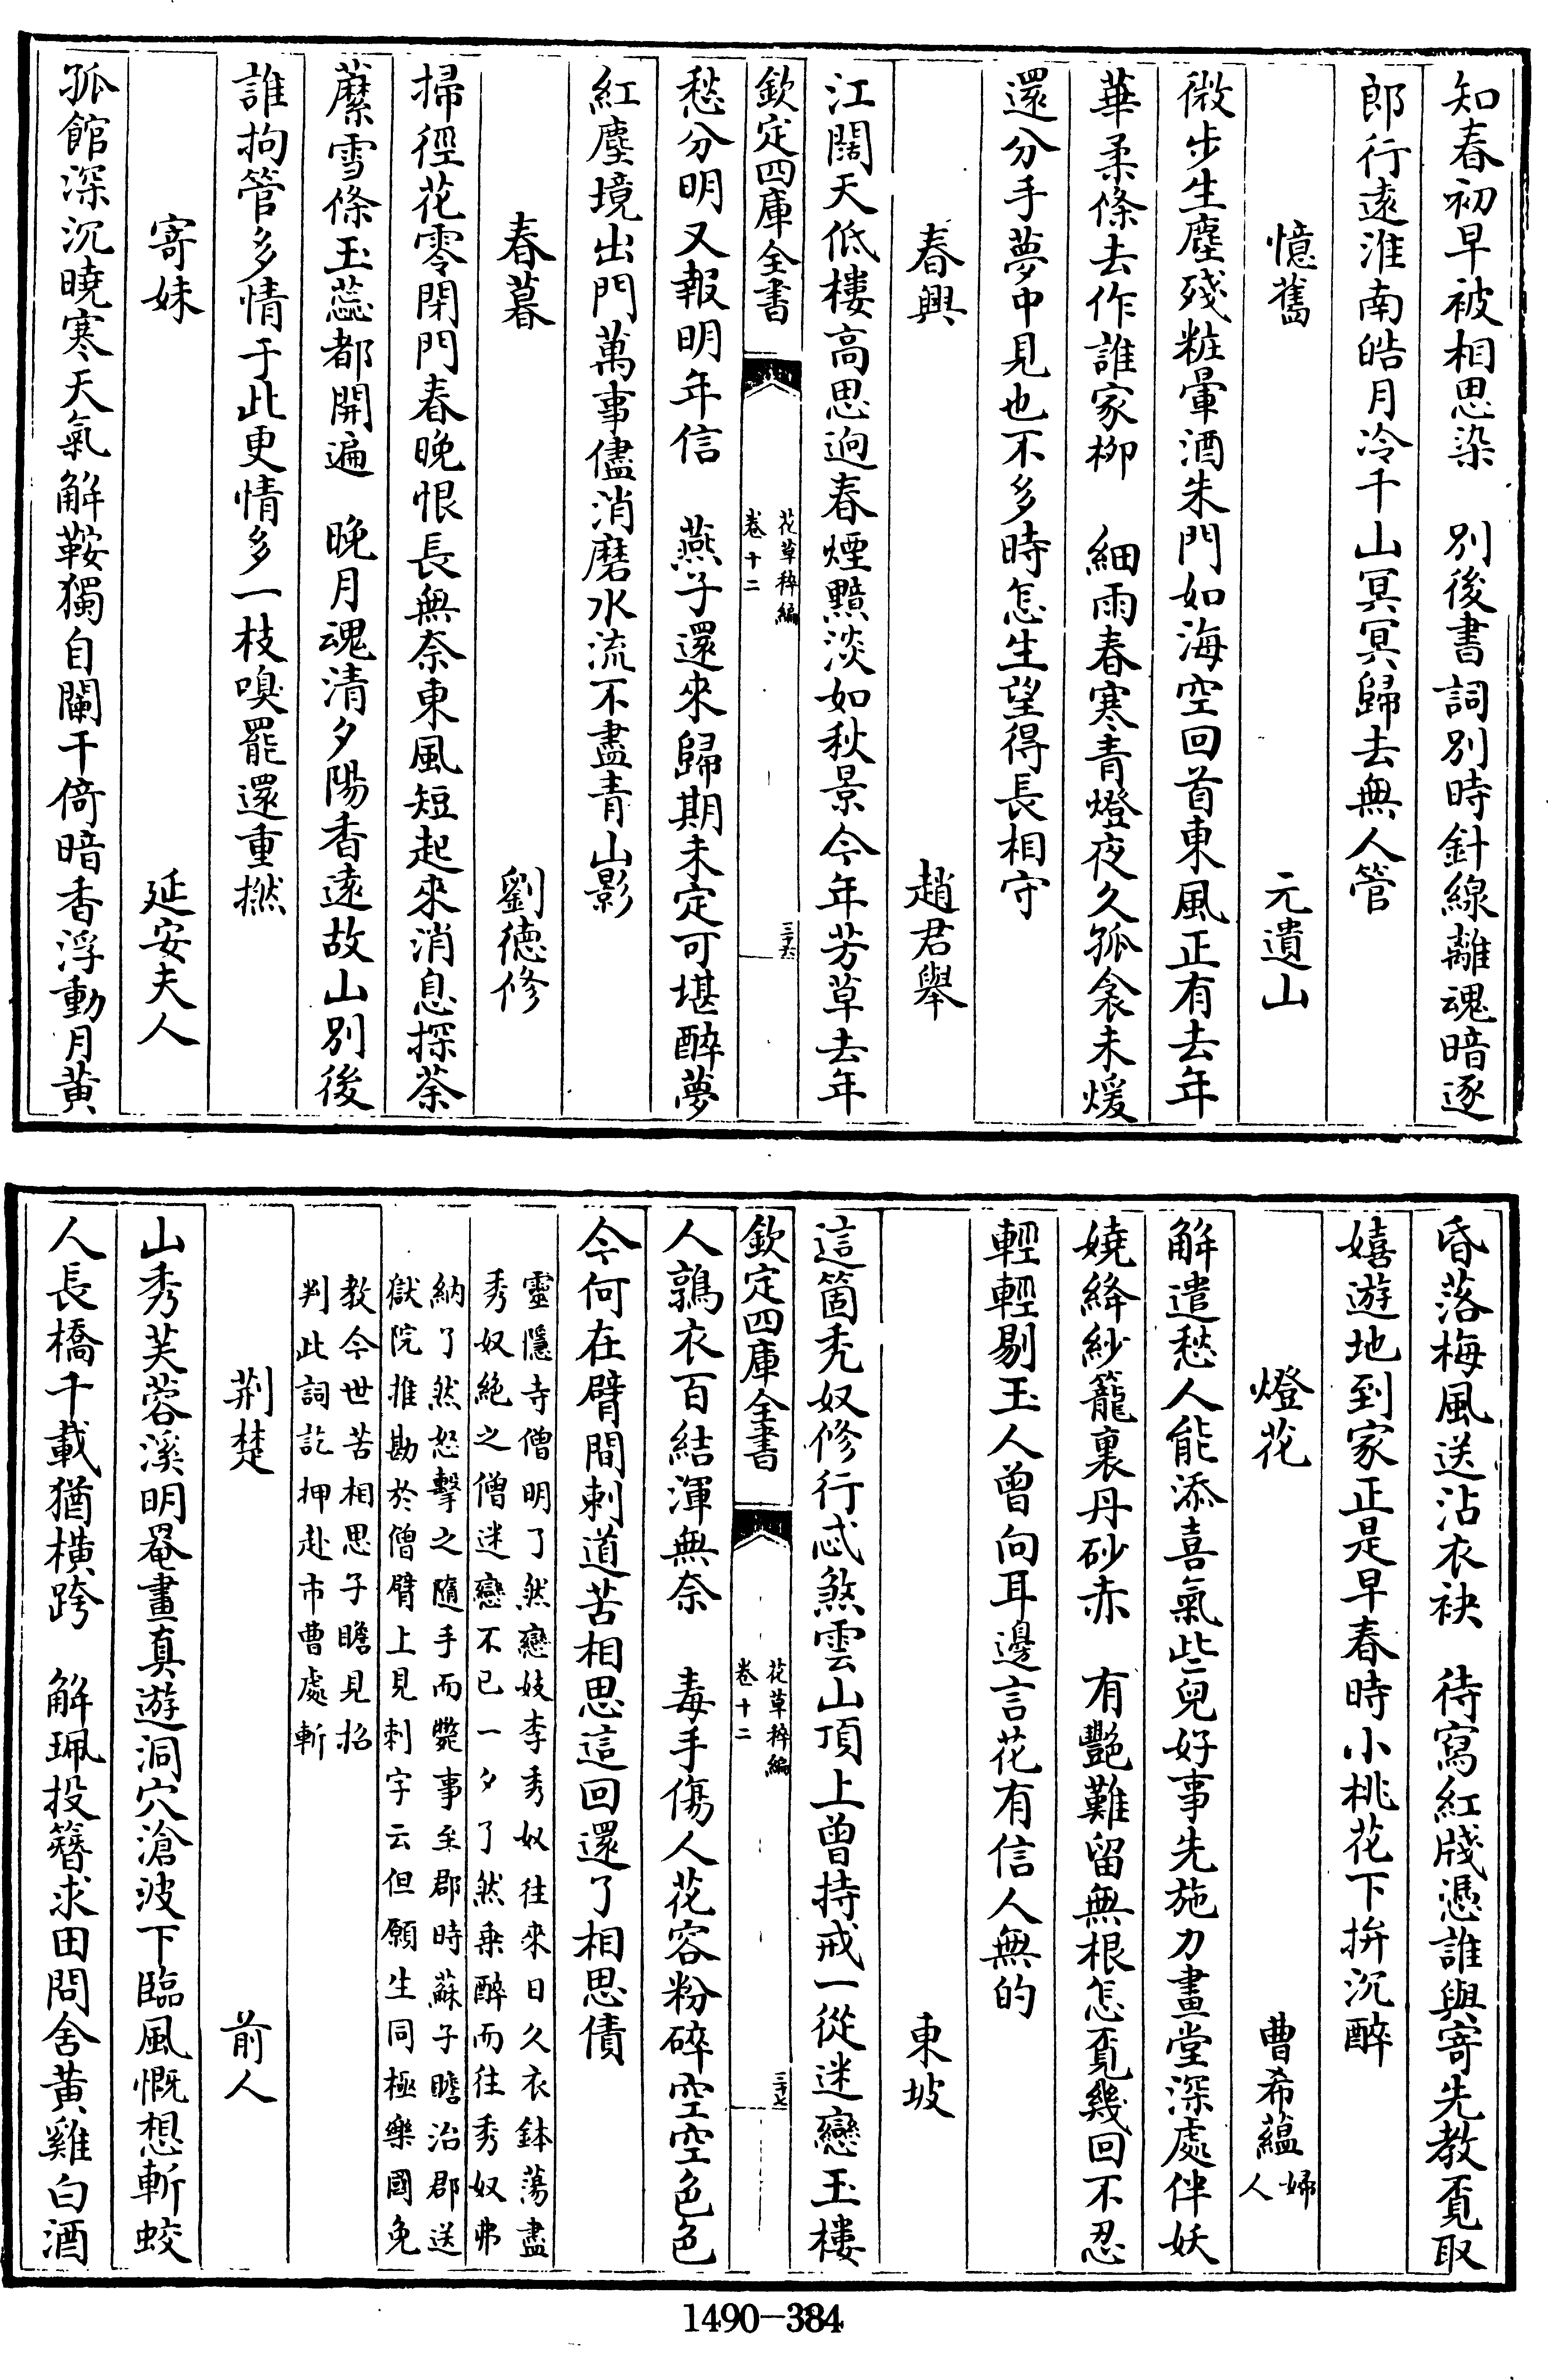 知春初早被相思染　別後書詞別時針線離魂暗逐
郎行逺淮南皓月冷千山冥冥歸去無人管
憶舊　元遺山
微步生塵殘粧暈酒朱門如海空回首東風正有去年
華柔條去作誰家柳　細雨春寒青燈夜久孤衾未煖
還分手夢中見也不多時怎生望得長相守
春興　趙君舉
江闊天低樓高思逈春煙黯淡如秋景今年芳草去年
欽定四庫全書　花草稡編　卷十二　三十六
愁分明又報明年信　燕子還來歸期未定可堪醉夢
紅塵境出門萬事儘消磨水流不盡青山影
春暮　劉德修
掃徑花零閉門春晚恨長無奈東風短起來消息探荼
蘼雪條玉蕊都開遍　晚月魂清夕陽香逺故山別後
誰拘管多情于此更情多一枝嗅罷還重撚
寄妹　延安夫人
孤館深沉曉寒天氣解鞍獨自闌干倚暗香浮動月黄
昏落梅風送沾衣袂　待寫紅牋憑誰與寄先教覔取
嬉遊地到家正是早春時小桃花下拚沉醉
燈花　曹希藴婦人
解遣愁人能添喜氣些兒好事先施力畫堂深處伴妖
嬈絳紗籠裏丹砂赤　有艷難留無根怎覔幾回不忍
輕輕剔玉人曾向耳邊言花有信人無的
東坡
這箇禿奴修行忒煞雲山頂上曾持戒一從迷戀玉樓
欽定四庫全書　花草稡編　卷十二　三十七
人鶉衣百結渾無奈　毒手傷人花容粉碎空空色色
今何在臂間刺道苦相思這回還了相思債
靈隱寺僧明了然戀妓李秀奴往來日久衣鉢蕩盡
秀奴絶之僧迷戀不已一夕了然乗醉而往秀奴弗
納了然怒擊之隨手而斃事至郡時蘇子瞻治郡送
獄院推勘於僧臂上見刺字云但願生同極樂國免
教今世苦相思子瞻見招
判此詞訖押赴市曹處斬
荆楚　前人
山秀芙蓉溪明罨畫真遊洞穴滄波下臨風慨想斬蛟
人長橋千載猶横跨　解珮投簮求田問舍黄雞白酒
1490-384